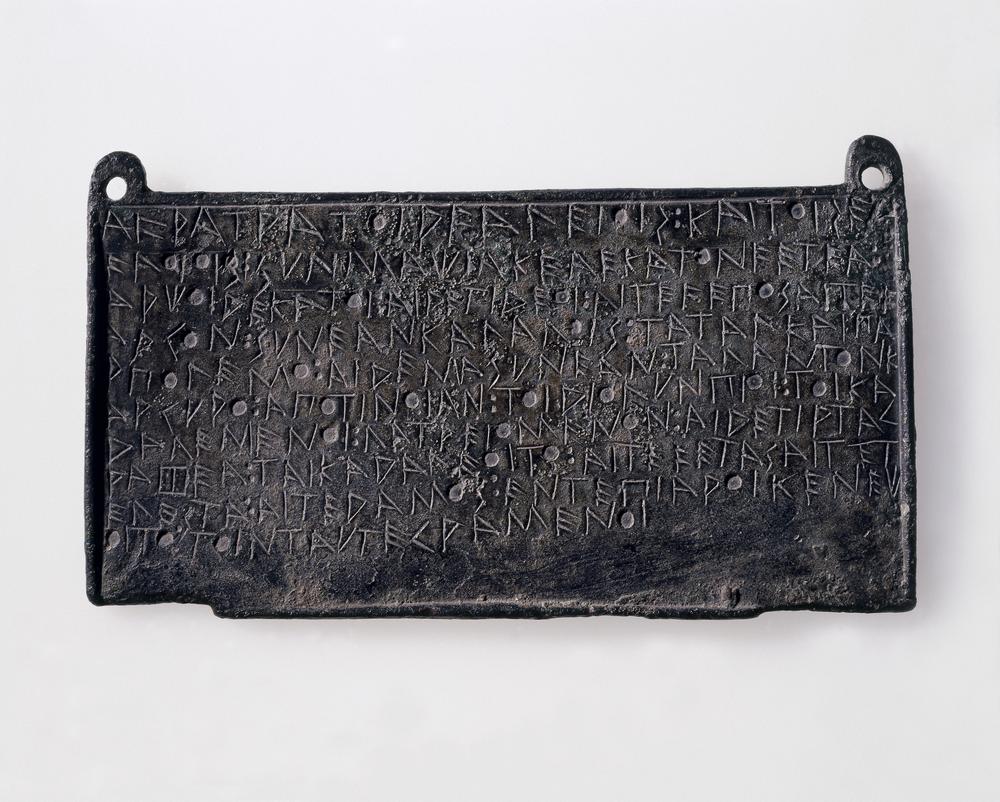 ΑϜΡΑΤΡΑΤΟΙΡϜΑΛΕΙΟΙΣ⋮ΚΑΙΤΟΙΣΕΡ
ϜΑΟΙΟΙΣ⋮ΣΥΝΜΑΧΙΑΚΕΑΕΚΑΤΟΝϜΕΤΕΑ⋮
ΑΡΧΟΙΔΕΚΑΤΟΙ⋮ΑΙΔΕΤΙΔΕΟΙ⋮ΑΙΤΕϜΕΠΟΣΑΙΤΕϜ
ΑΡΓΟΝ⋮ΣΥΝΕΑΝΚΑΛΑΛΟΙΣ⋮ΤΑΤΑΛΚΑΙΠΑ
ΡΠΟΛΕΜΟ⋮ΑΙΔΕΜΑΣΥΝΕΑΝ⋮ΤΑΛΑΝΤΟΝΚ
ΑΡΓΥΡΟ⋮ΑΠΟΤΙΝΟΙΑΝ⋮ΤΟΙΔΙΟΛΥΝΠΙΟΙ⋮ΤΟΙΚΑ
ΔΑΛΕΜΕΝΟΙ⋮ΛΑΤΡΕΙΟΜΕΝΟΝ⋮ΑΙΔΕΤΙΡΤΑΓ
ΡΑΦΕΑ⋮ΤΑΙΚΑΔΑΛΕΟΙΤΟ⋮ΑΙΤΕϜΕΤΑΣΑΙΤΕΤ
ΕΛΕΣΤΑ⋮ΑΙΤΕΔΑΜΟΣ⋮ΕΝΤΕΠΙΑΡΟΙΚΕΝΕΧ
ΟΙΤΟΤΟΙΝΤΑΥΤΕΓΡΑΜΕΝΟΙ